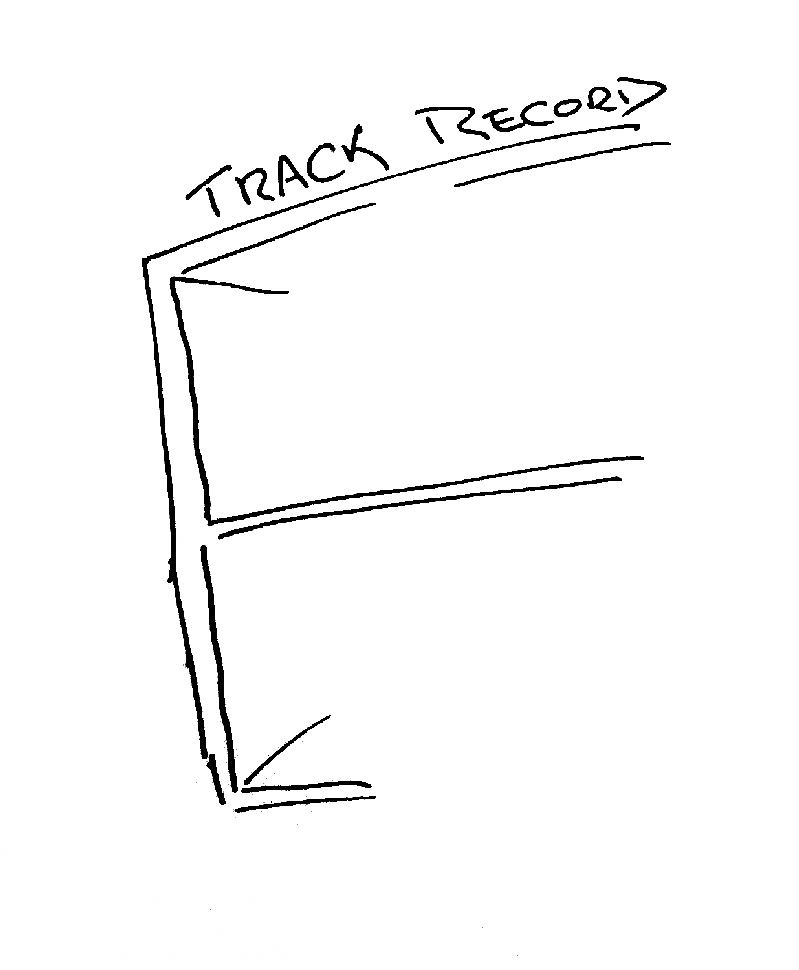 TRACK RECORD